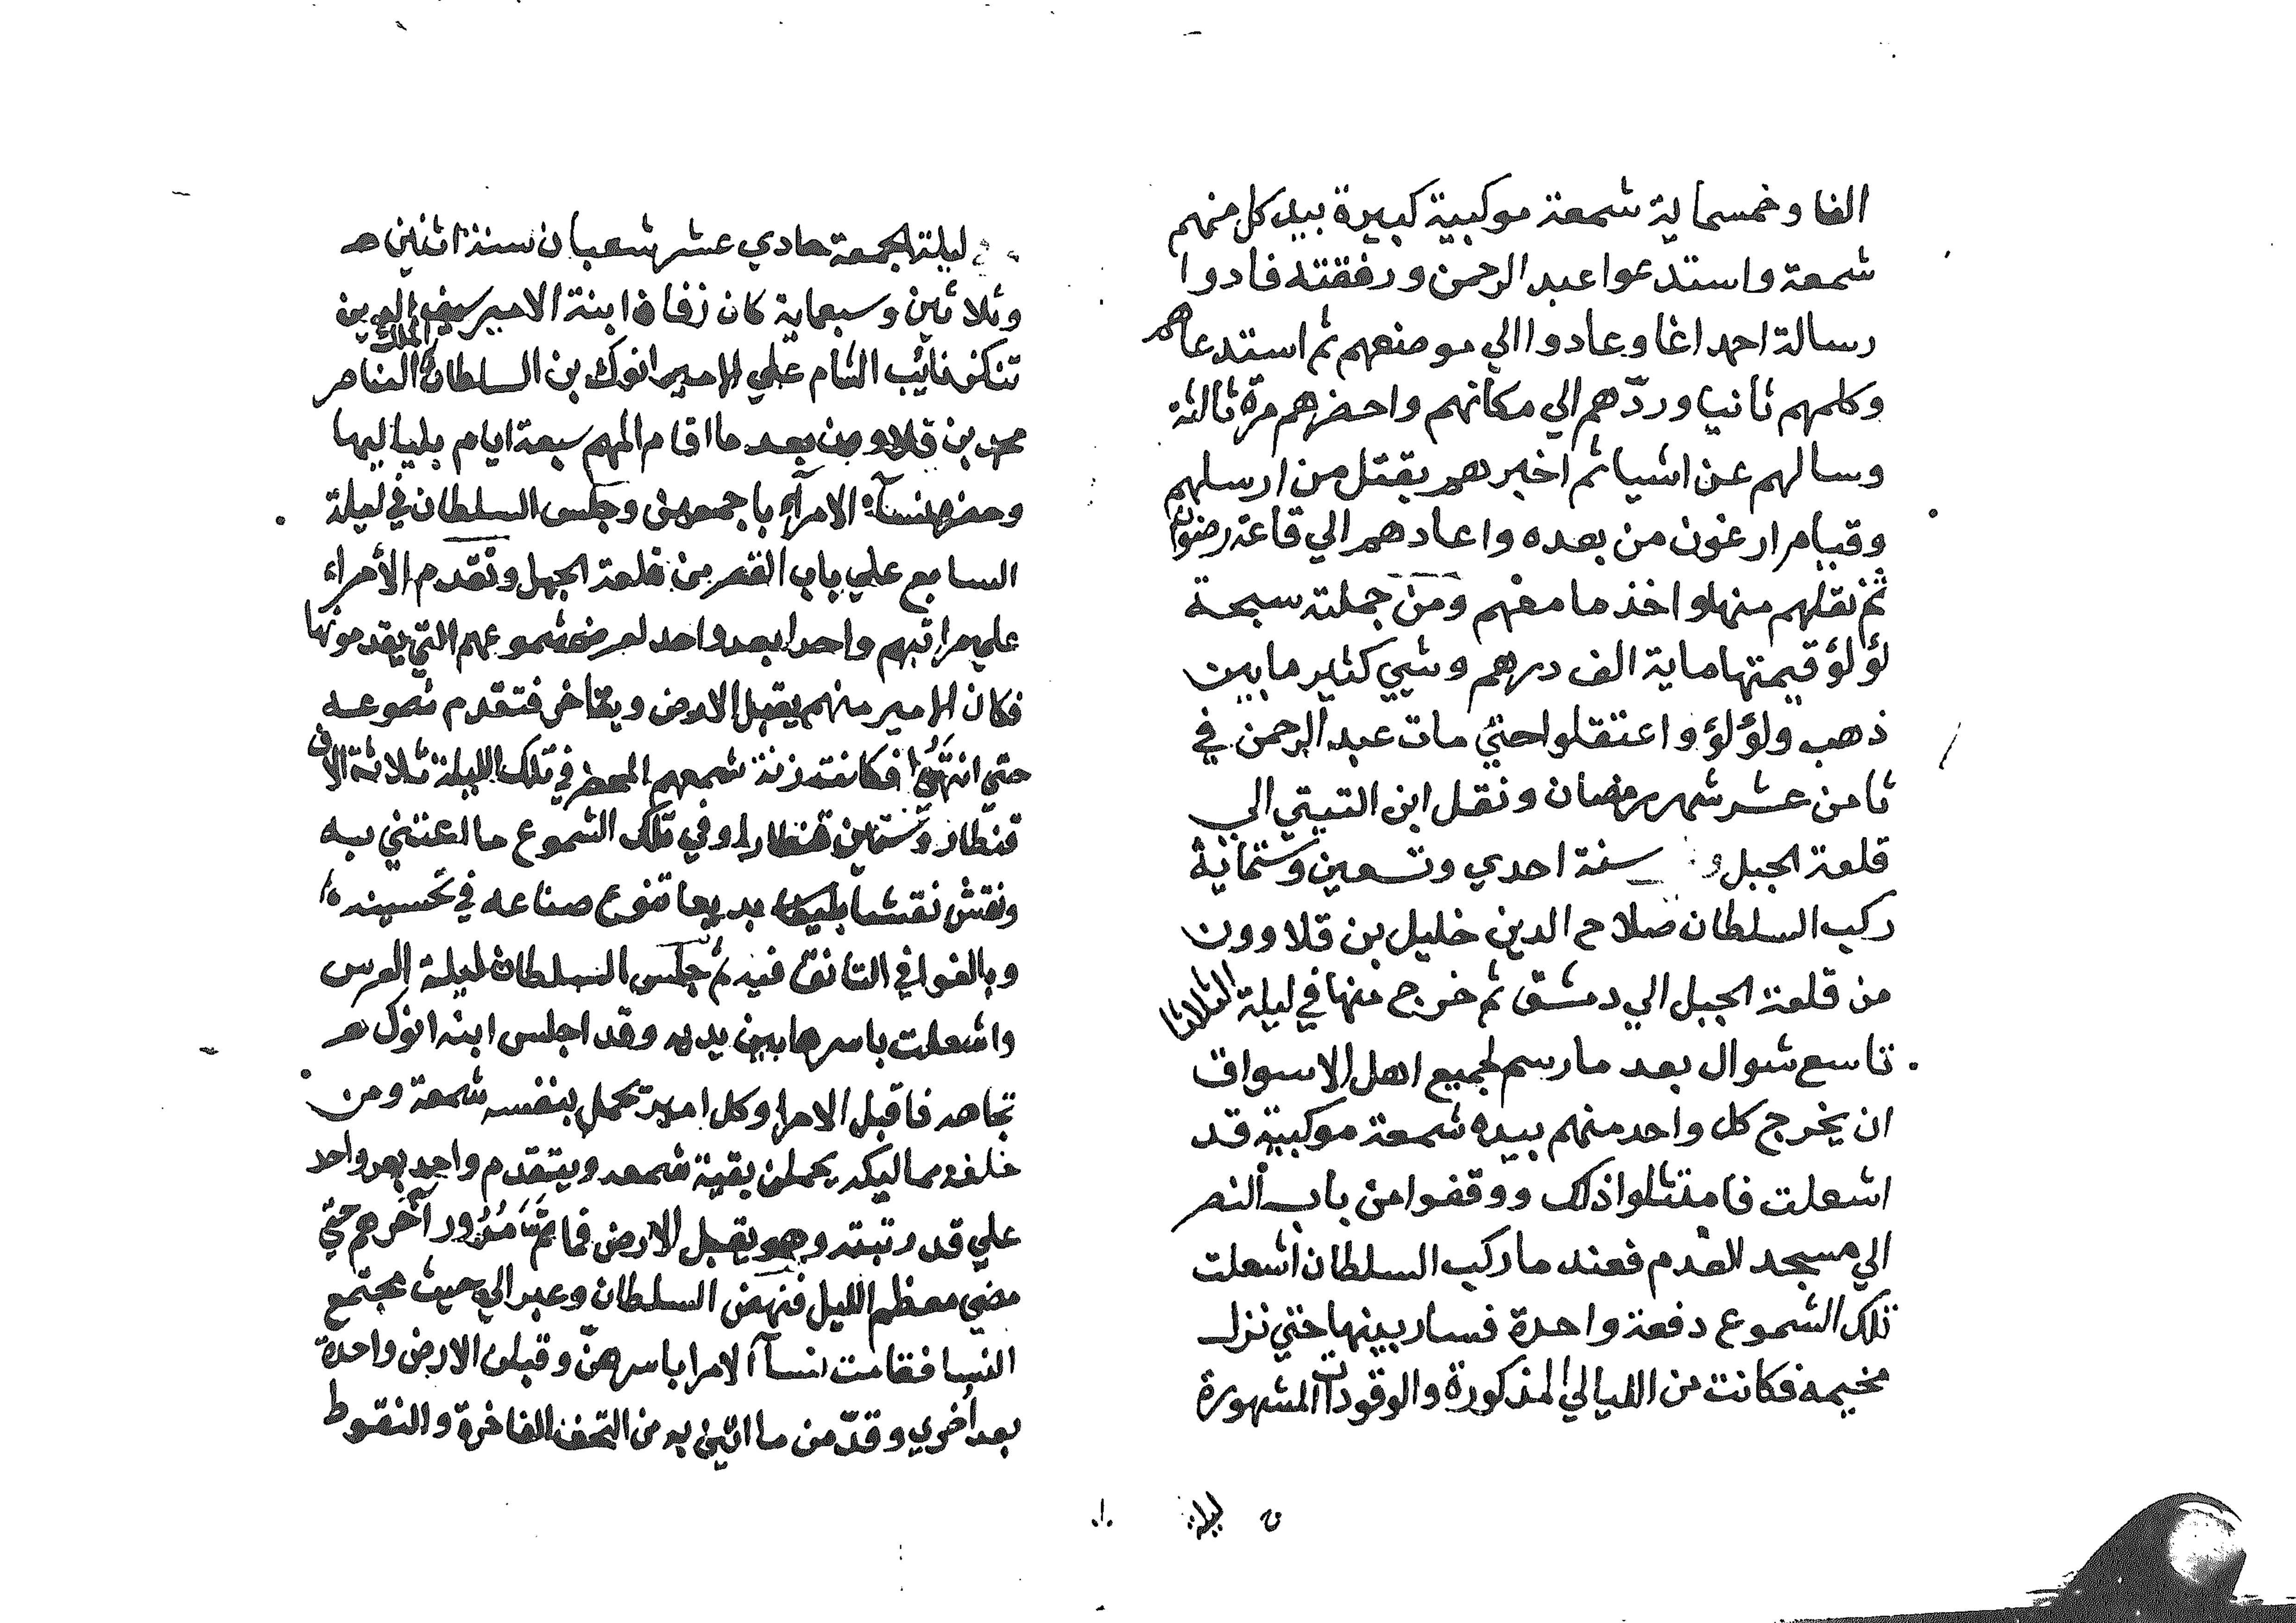 الفا وخمسماية شمعة موكبية كبيرة بيد كل منهم
شمعة واستدعوا عبد الرحمن ورفقته فادوا
رسالة احمد اغا وعادوا الي موضعهم ثم استدعاهم
وكلمهم ثانيا وردّهم الي مكانهم واحضرهم مرة ثالثة
وسالهم عن اشيا ثم اخبرهم بقتل من ارسلهم
وقيام ارغون من بعده واعادهم الي قاعة رضوان
ثم نقلهم منها واخذ ما معهم ومن جملته سبحة
لؤلؤ قيمتها ماية الف درهم وشيي كثير ما بين
ذهب ولؤلؤ واعتقلوا حتي مات عبد الرحمن في
ثامن عشر شهر رمضان ونقل ابن التيتي الي
قلعة الجبل و سنة احدي وتسعين وستماية
ركب السلطان صلاح الدين خليل بن قلاوون
من قلعة الجبل الي دمشق ثم خرج منها في ليلة الثلاثا
تاسع شوال بعد ما رسم لجميع اهل الاسواق
ان يخرج كل واحد منهم بيده شمعة موكبية قد
اشعلت فامتثلوا ذلك ووقفوا من باب النصر
الي مسجد القدم فعند ما ركب السلطان اشعلت
تلك الشموع دفعة واحدة فسار بينها حتي نزل
مخيمه فكانت من الليالي المذكورة والوقودات المشهورة
ليلة
ليلة الجمعة حادي عشر شعبان سنة اثنين
وثلاثين وسبعماية كان زفاف ابنة الامير سيف الدين
تنكز نائب الشام علي الامير انوك بن السلطان الملك الناصر
محمد بن قلاوون بعد ما اقام المهم سبعة ايام بلياليها
وحضره نسآء الامرآء باجمعهن وجلس السلطان في ليلة
السابع علي باب القصر من قلعة الجبل وتقدم الأمراء
علي مراتبهم واحدا بعد واحد لعرض شموعهم التي يقدمونها
فكان الامير منهم يقبل الارض ويتاخر فتقدم شموعه
حتي انتهوا فكانت زنة شمعهم المحضر في تلك الليلة ثلاثة الاف
قنطار وستين قنطارا وفي تلك الشموع ما اعتني به
ونقش نقشا مليحا بديعا تنوع صناعه في تحسينه
وبالغوا في التانق فيه ثم جلس السلطان ليلة العرس
واشعلت باسرها بين يديه وقد اجلس ابنه انوك
تجاهه فاقبل الامرا وكل امير يحمل بنفسه شمعة ومن
خلفه مماليكه يحملن بقية شمعه ويتقدم واحد بعد واحد
علي قدر رتبته وهو يقبل الارض فما تمّ مُرُور آخرهم حتي
مضي معظم الليل فنهض السلطان وعبر الي حيث مجتمع
النسا فقامت نسآ الامرا باسرهنّ وقبلن الارض واحدة
بعد اُخري وقدّمن ما اتين به من التحف الفاخرة والنقوط